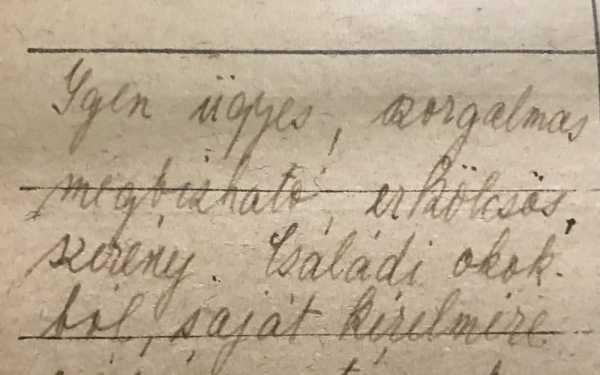 Igen ügyes, szorgalmas
megbízható, erkölcsös,
szerény. Családi okok-
ból, saját kérelmére